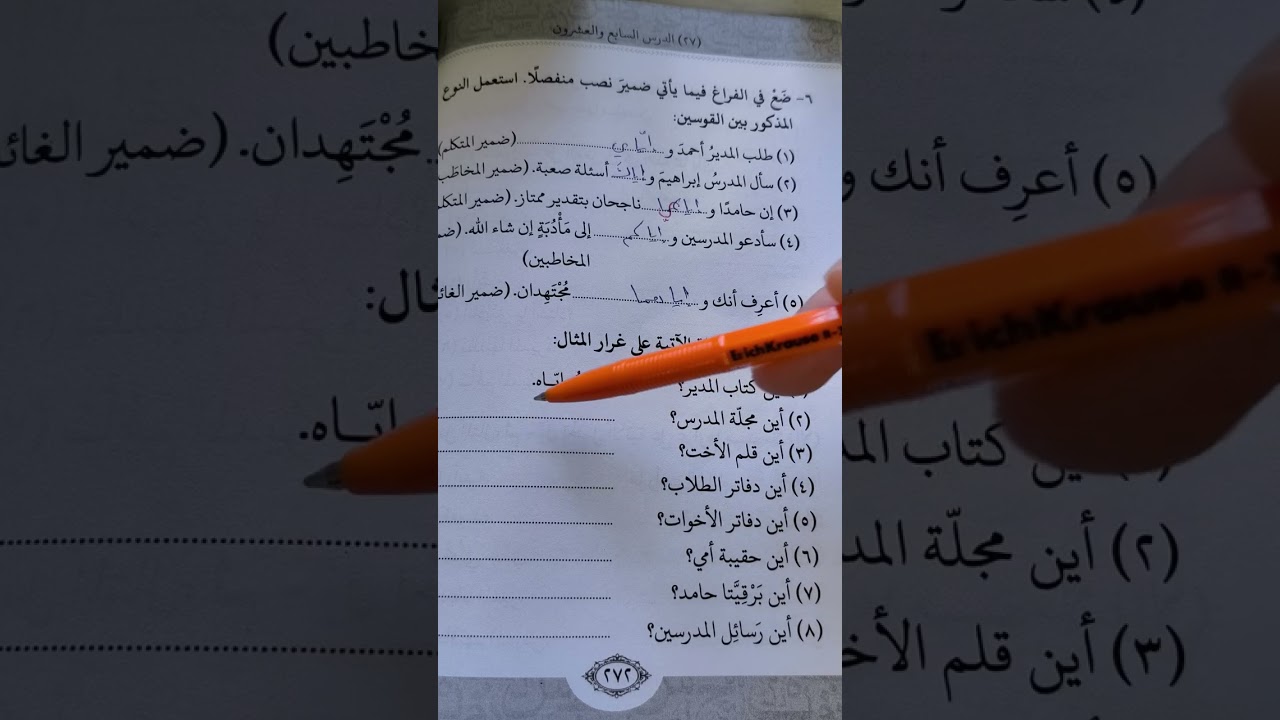 (٢٧) الدرس السابع والعشرون
٦- ضَعْ في الفراغ فيما يأتي ضميرَ نصب منفصلًا. استعمل النوع
المذكور بين القوسين:
(١) طلب المديرُ أحمدَ و إيّايَ (ضمير المتكلم)
(٢) سأل المدرسُ إبراهيمَ و إياكَ أسئلة صعبة. (ضمير المخاطب
(٣) إن حامدًا و ناجحان بتقدير ممتاز. (ضمير المتكلم
(٤) سأدعو المدرسين و إياكم إلى مَأْدُبَةٍ إن شاء الله. (ضم
المخاطبين)
(٥) أعرِف أنك و إياهما مُجْتَهِدان. (ضمير الغائ
الآتية على غرار المثال:
كتاب المدير؟ إيّاه.
(٢) أين مجلّة المدرس؟
(٣) أين قلم الأخت؟
(٤) أين دفاتر الطلاب؟
(٥) أين دفاتر الأخوات؟
(٦) أين حقيبة أمي؟
(٧) أين بَرْقِيَّتا حامد؟
(٨) أين رَسائِل المدرسين؟
٢٧٢
ErichKrause R-